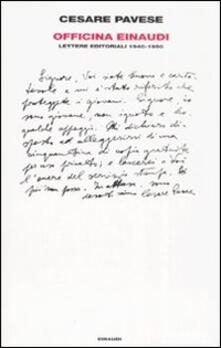 CESARE PAVESE
OFFICINA EINAUDI
LETTERE EDITORIALI 1940-1950
Signore, Voi siete buono e carita-
tevole e mi è stato riferito che
proteggete i giovani. Signore, io
sono giovane, non ignoto e ho
qualche appoggi. Mi dichiaro di-
sposto ad alleggerirvi di una
cinquantina di copie gratuite
per uso privato; e lascerei a Voi
l'onere del servizio stampa. Di
più non posso. In attesa, sono
Cesare Pavese
EINAUDI